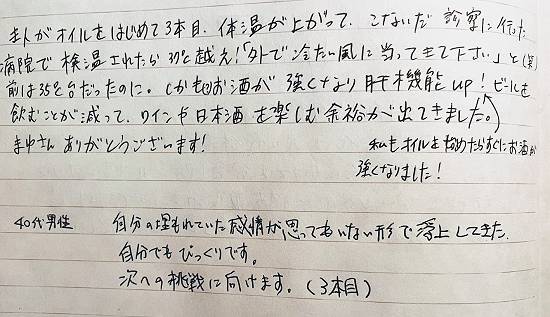 主人がオイルをはじめて3本目、体温が上がって、こないだ診察に行った
病院で検温されたら37℃越え!「外で冷たい風に当ってきて下さい」と(笑)
前は35℃台だったのに。しかもお酒が強くなり肝機能up!ビールを
飲むことが減って、ワインや日本酒を楽しむ余裕がが出てきました。
まゆさんありがとうございます!
私もオイルを始めたらすぐにお酒が
強くなりました!
40代男性 自分の埋もれていた感情が思ってもいない形で浮上してきた。
自分でもびっくりです。
次への挑戦に向けます。(3本目)